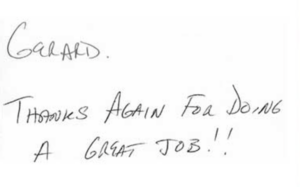 GERARD.
THANKS AGAIN FOR DOING
A GREAT JOB!!